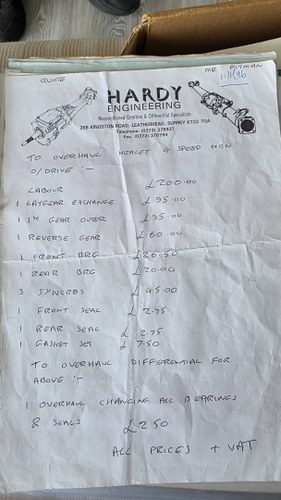 QUOTE
MR PITMAN
11/1/96
HARDY
ENGINEERING
Reconditioned Gearbox & Differential Specialists
268 KINGSTON ROAD, LEATHERHEAD, SURREY KT22 7QA
Telephone: (0372) 378927
Fax: (0372) 378794
TO OVERHAUL HEALEY 4 SPEED NON
O/DRIVE :-
LABOUR £200.00
1 LAYGEAR EXCHANGE £95.00
1 1ST GEAR OUTER £95.00
1 REVERSE GEAR £60.00
1 FRONT BRG £20.50
1 REAR BRG £20.00
3 SYNCROS £45.00
1 FRONT SEAL £ 2.75
1 REAR SEAL £ 2.75
1 GASKET SET £ 7.50
TO OVERHAUL DIFFERENTIAL FOR
ABOVE :-
1 OVERHAUL CHANGING ALL BEARINGS
& SEALS £250
ALL PRICES + VAT